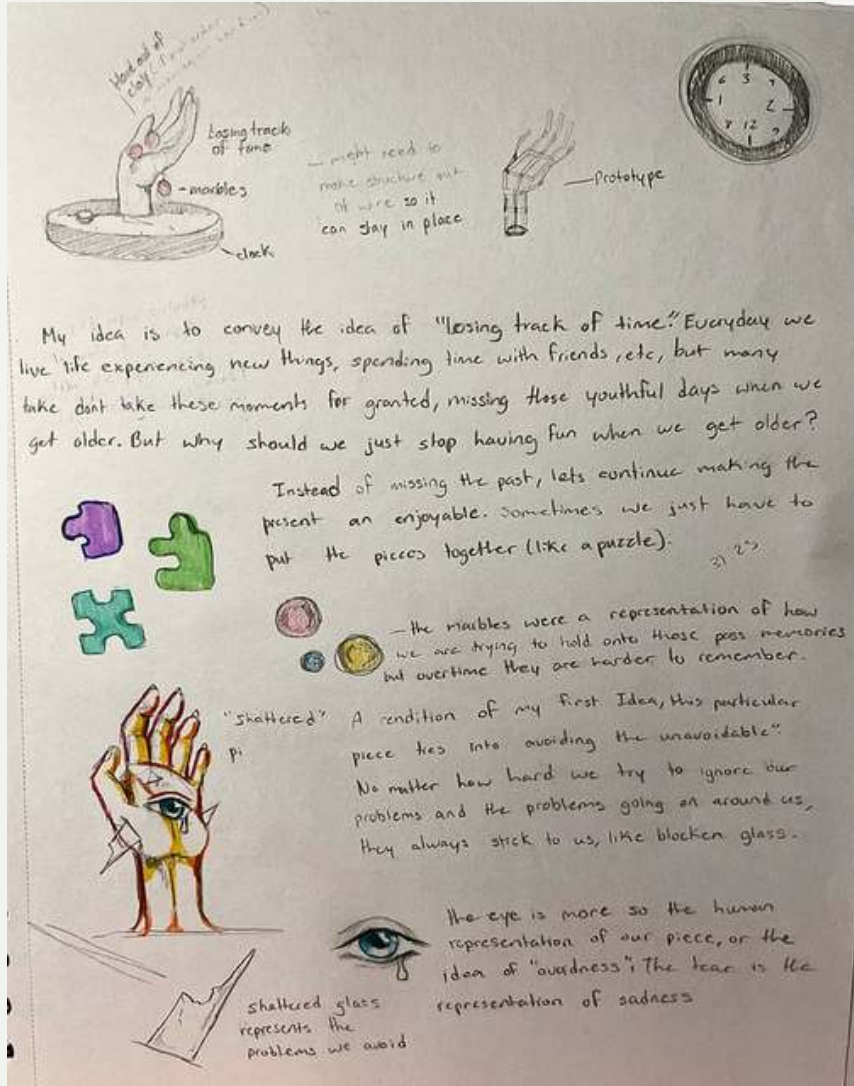 Hand out of
clay
Losing track
of time
-marbles
clock
- might need to
make structure out
of wire so it
can stay in place
-Prototype
6 3
1 2
12
My idea is to convey the idea of "Losing track of time." Everyday we
live life experiencing new things, spending time with friends, etc, but many
take dont take these moments for granted, missing those youthful days when we
get older. But why should we just stop having fun when we get older?
Instead of missing the past, lets continue making the
present an enjoyable. Sometimes we just have to
put the pieces together (like a puzzle).
- the marbles were a representation of how
we are trying to hold onto those pass memories
but overtime they are harder to remember.
"Shattered"
pi
A rendition of my first Idea, this particular
piece ties into avoiding the unavoidable".
No matter how hard we try to ignore our
problems and the problems going on around us,
they always stick to us, like blocken glass.
the eye is more so the human
representation of our piece, or the
idea of ; The tear is the
representation of sadness
shattered glass
represents the
problems we avoid